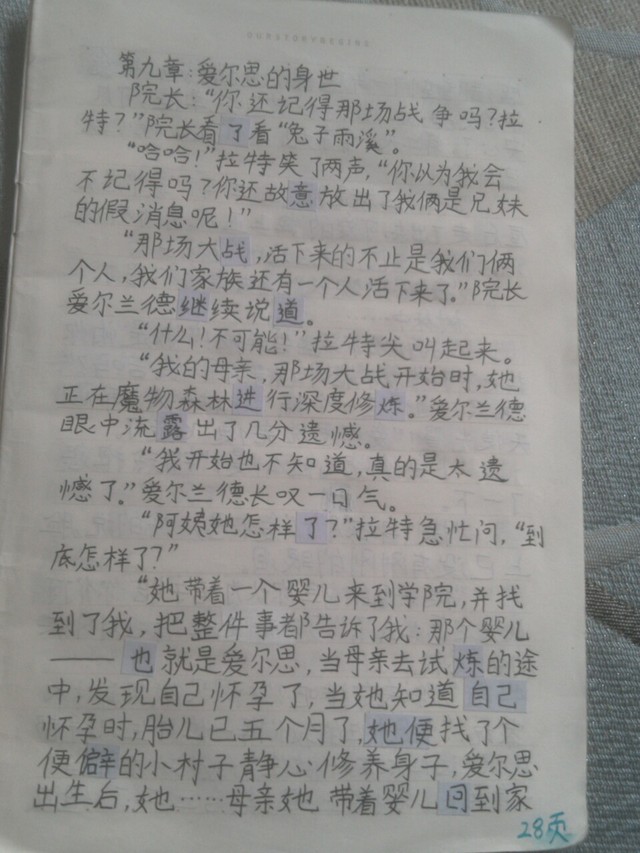 第九章：爱尔思的身世
院长：“你还记得那场战争吗？拉
特？”院长看了看“兔子雨溪”。
“哈哈！”拉特笑了两声，“你以为我会
不记得吗？你还故意放出了我俩是兄妹
的假消息呢！”
“那场大战，活下来的不止是我们俩
个人，我们家族还有一个人活下来了。”院长
爱尔兰德继续说道。
“什么！不可能！”拉特尖叫起来。
“我的母亲，那场大战开始时，她
正在魔物森林进行深度修炼。”爱尔兰德
眼中流露出了几分遗憾。
“我开始也不知道，真的是太遗
憾了。”爱尔兰德长叹一口气。
“阿姨她怎样了？”拉特急忙问，“到
底怎样了？”
“她带着一个婴儿来到学院，并找
到了我，把整件事都告诉了我：那个婴儿
——也就是爱尔思，当母亲去试炼的途
中，发现自己怀孕了，当她知道自己
怀孕时，胎儿已五个月了，她便找了个
便僻的小村子静心修养身子，爱尔思
出生后，她……母亲她带着婴儿回到家
28页